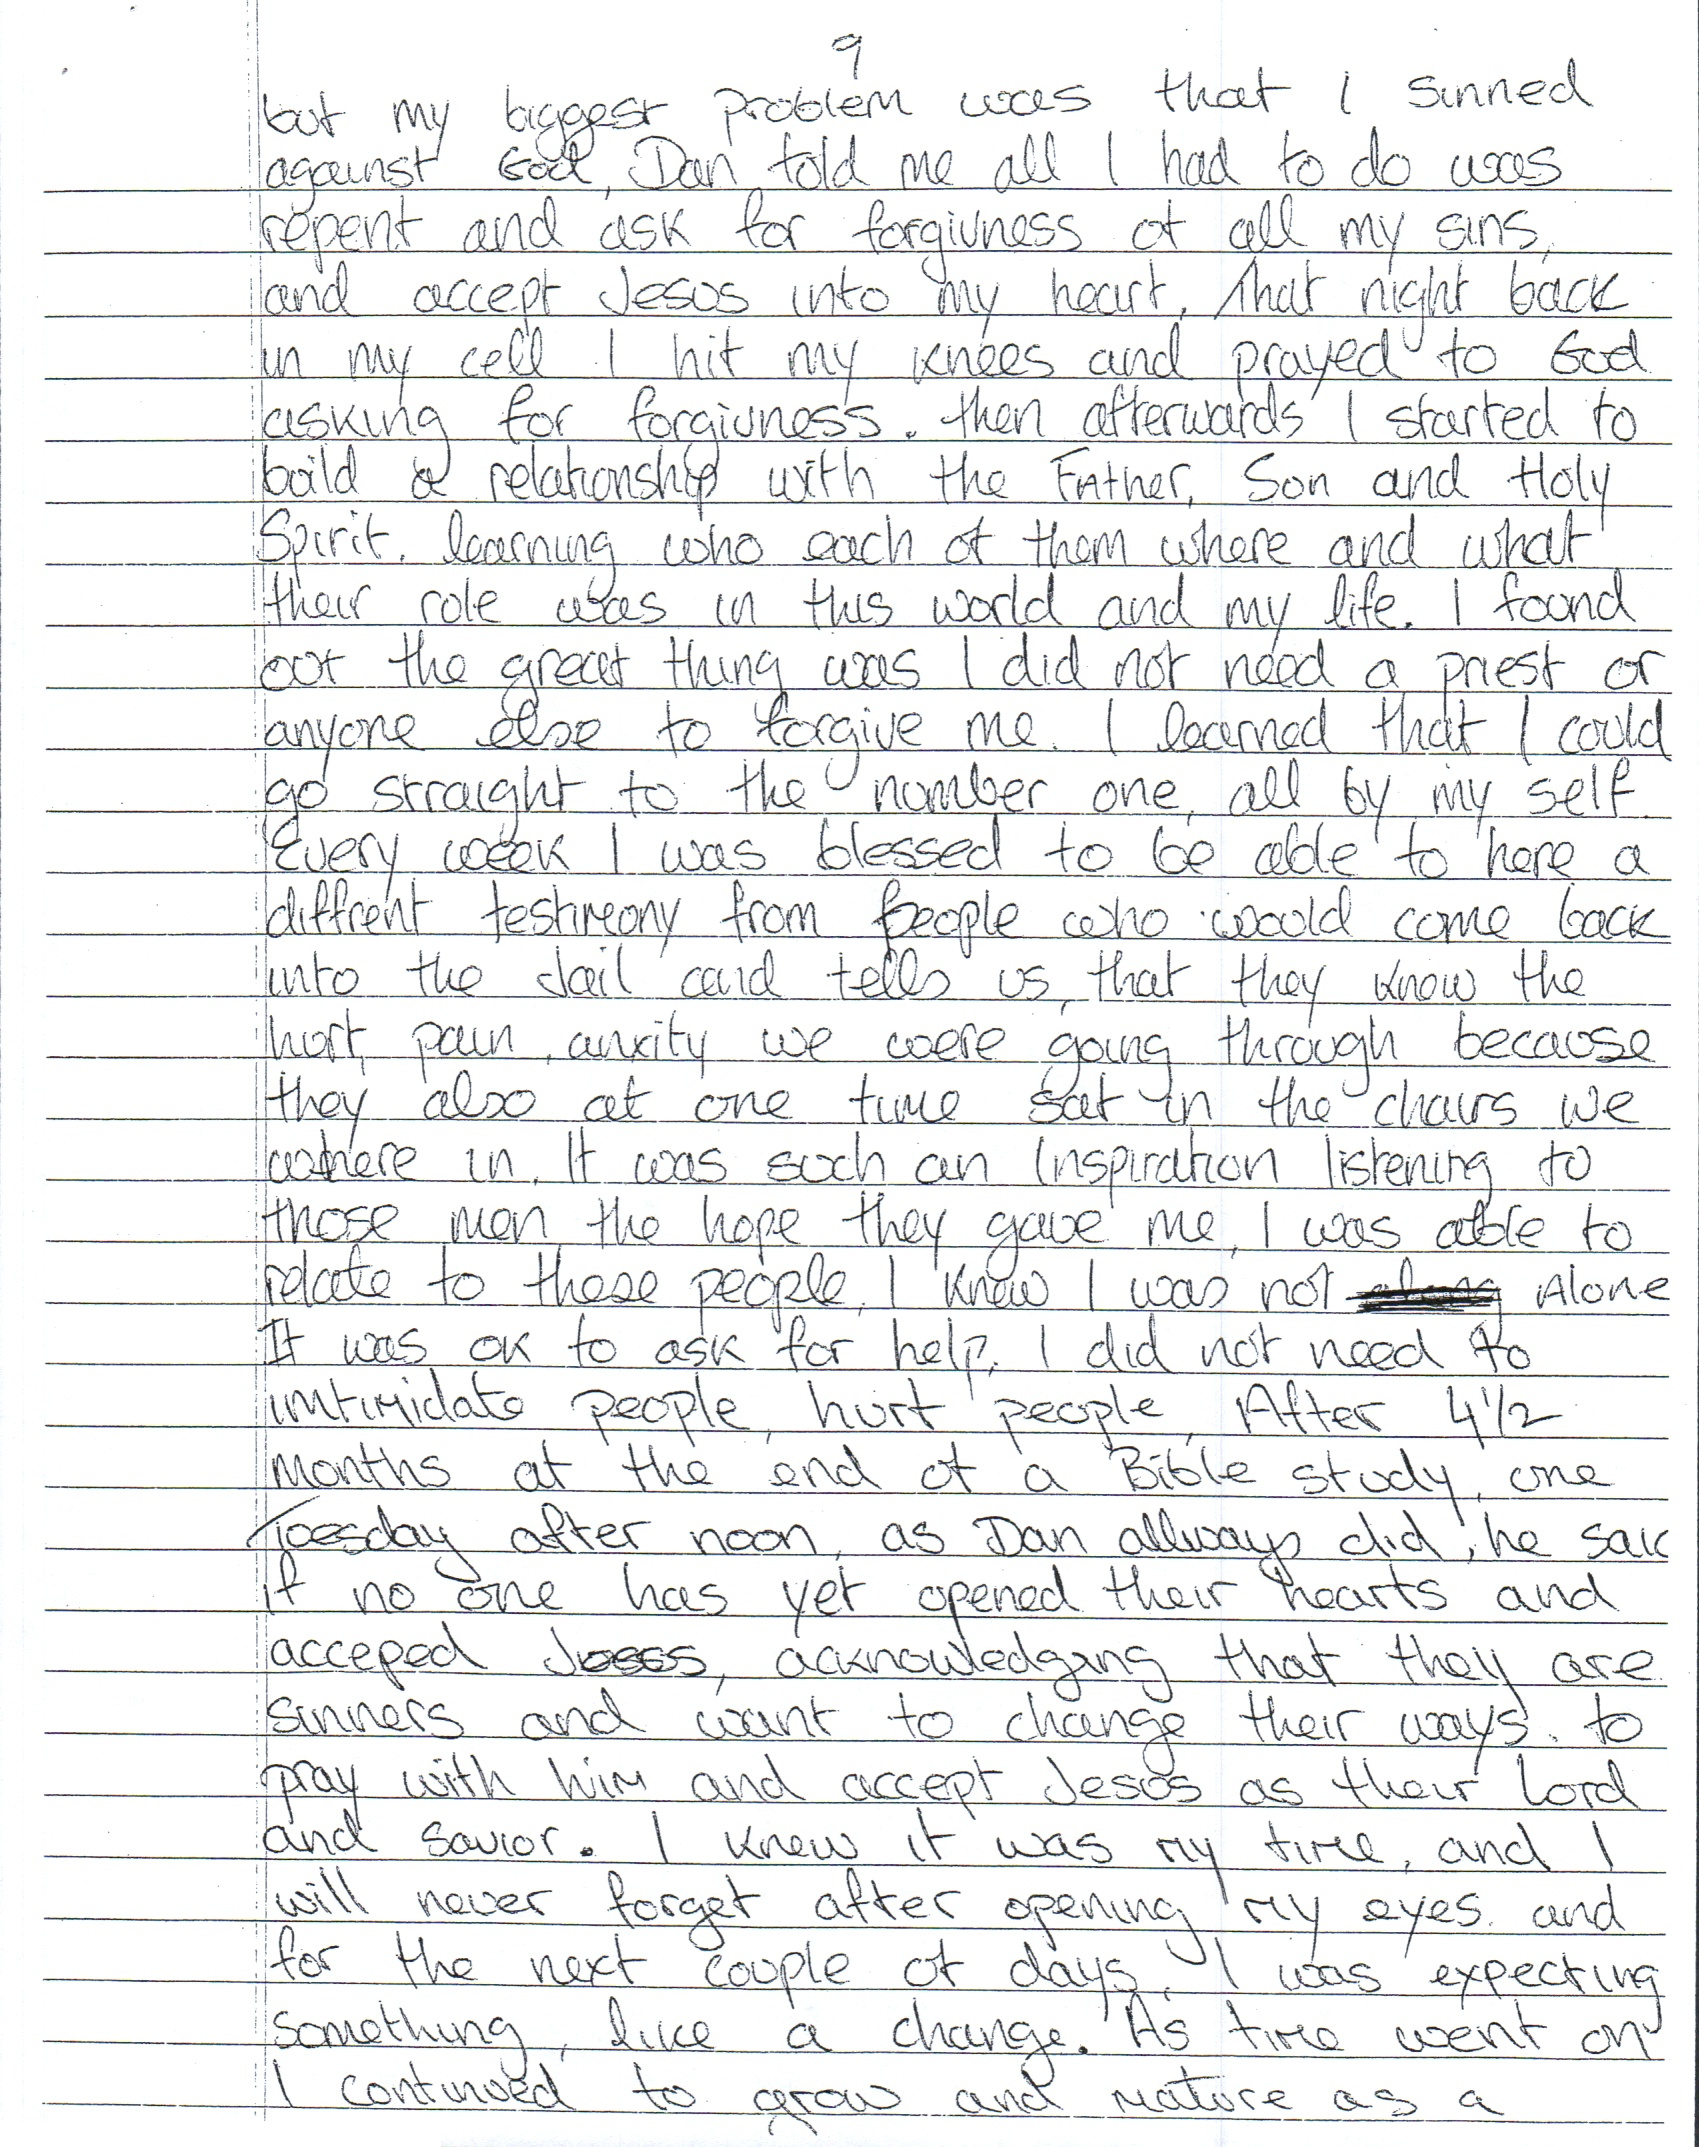 9
but my biggest problem was that I sinned
against God, Dan told me all I had to do was
repent and ask for forgivness of all my sins,
and accept Jesus into my heart. That night back
in my cell I hit my knees and prayed to God
asking for forgivness. then afterwards I started to
build a relationship with the Father, Son and Holy
Spirit. learning who each of them where and what
their role was in this world and my life. I found
out the great thing was I did not need a priest or
anyone else to forgive me. I learned that I could
go straight to the number one, all by my self.
Every week I was blessed to be able to here a
diffrent testimony from people who would come back
into the Jail and tells us, that they know the
hurt, pain, anxity we were going through because
they also at one time sat in the chairs we
where in. It was such an Inspiration listening to
those men, the hope they gave me, I was able to
relate to these people, I knew I was not Alone
It was ok to ask for help. I did not need to
imtimidate people, hurt people, After 4 1/2
months at the end of a Bible study, one
Tuesday after noon, as Dan allways did, he said
if no one has yet opened their hearts and
acceped Jesus, acknowledging that they are
sinners and want to change their ways. to
pray with him and accept Jesus as their Lord
and savior. I knew it was my time, and I
will never forget after opening my eyes. and
for the next couple of days, I was expecting
something, like a change. As time went on
I continued to grow and mature as a